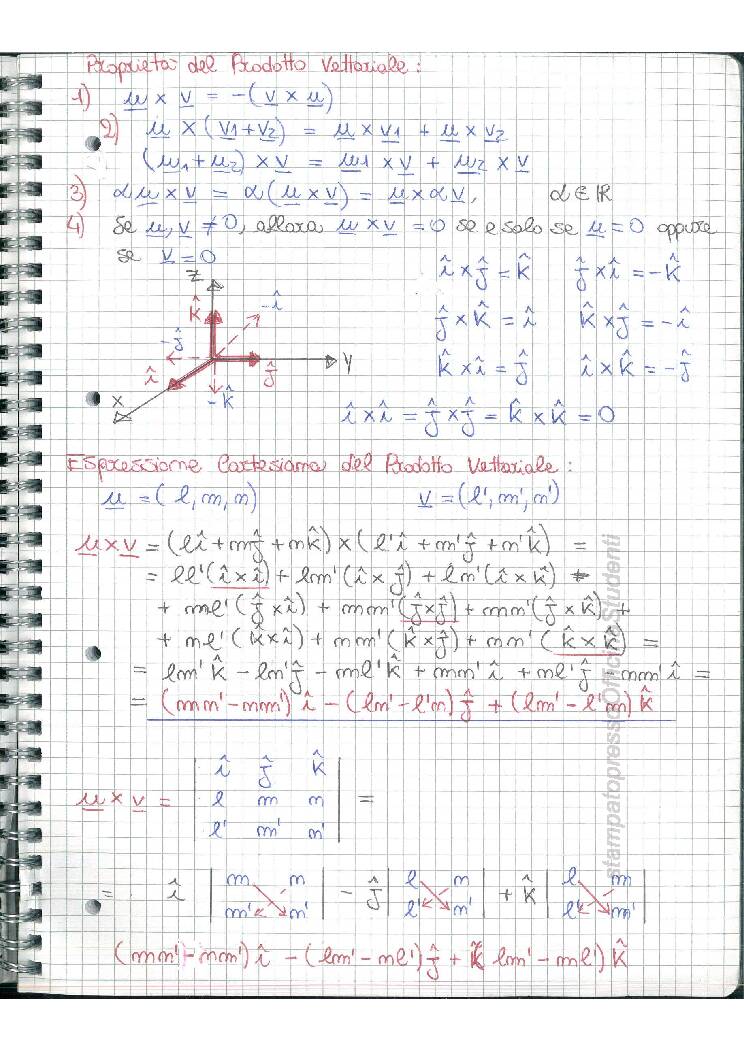 Proprietà del Prodotto Vettoriale:
1) u × v = -(v × u)
2) u × (v1+v2) = u × v1 + u × v2
(u1+u2) × v = u1 × v + u2 × v
3) αu × v = α(u × v) = u × αv, α ∈ ℝ
4) Se u, v ≠ 0, allora u × v = 0 se e solo se u = 0 oppure
se v = 0
î × ĵ = k̂ ĵ × î = -k̂
ĵ × k̂ = î k̂ × ĵ = -î
k̂ × î = ĵ î × k̂ = -ĵ
î × î = ĵ × ĵ = k̂ × k̂ = 0
Z
k̂
-î
-ĵ
î
ĵ
y
x
-k̂
Espressione Cartesiana del Prodotto Vettoriale:
u = (l, m, n) v = (l', m', n')
u × v = (lî + mĵ + nk̂) × (l'î + m'ĵ + n'k̂) =
= ll'(î × î) + lm'(î × ĵ) + ln'(î × k̂) +
+ ml'(ĵ × î) + mm'(ĵ × ĵ) + mn'(ĵ × k̂) +
+ nl'(k̂ × î) + nm'(k̂ × ĵ) + nn'(k̂ × k̂) =
= lm'k̂ - ln'ĵ - ml'k̂ + mn'î + nl'ĵ - nm'î =
= (mn' - nm')î - (ln' - l'n)ĵ + (lm' - l'm)k̂
u × v = | î ĵ k̂ |
| l m n | =
| l' m' n' |
= î | m n | - ĵ | l n | + k̂ | l m |
| m' n' | | l' n' | | l' m' |
(mn' - nm')î - (ln' - nl')ĵ + (lm' - ml')k̂
stampatopressoOfficineStudenti